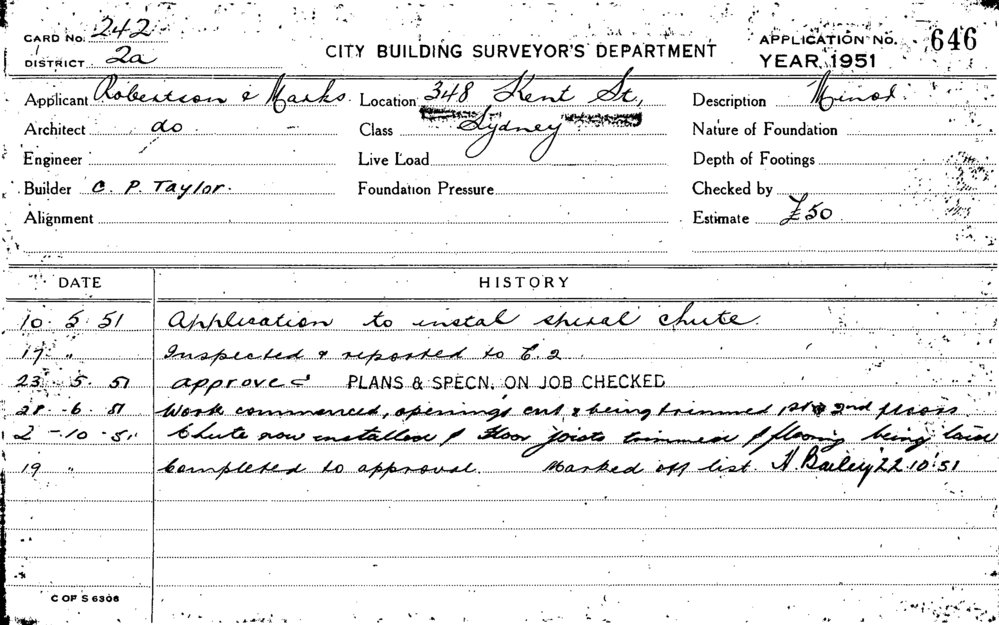 CARD No. 242
DISTRICT 2a
CITY BUILDING SURVEYOR'S DEPARTMENT
APPLICATION No. 646
YEAR 1951
Applicant Robertson & Marks. Location 348 Kent St, Description Minor.
Architect do Class Sydney Nature of Foundation
Engineer Live Load Depth of Footings
Builder C. P. Taylor. Foundation Pressure Checked by
Alignment Estimate £50
DATE HISTORY
10 5 51 Application to instal spiral chute.
17 " Inspected & reported to C. 2
23 5. 51 approved PLANS & SPECN. ON JOB CHECKED
28 -6. 51 Work commenced, openings cut & being trimmed 1st & 2nd floors
2 -10 -51 Chute now installed & Floor joists trimmed & flooring being laid
19 " Completed to approval. Marked off list. H. Bailey 22.10.51
C OF S 6306